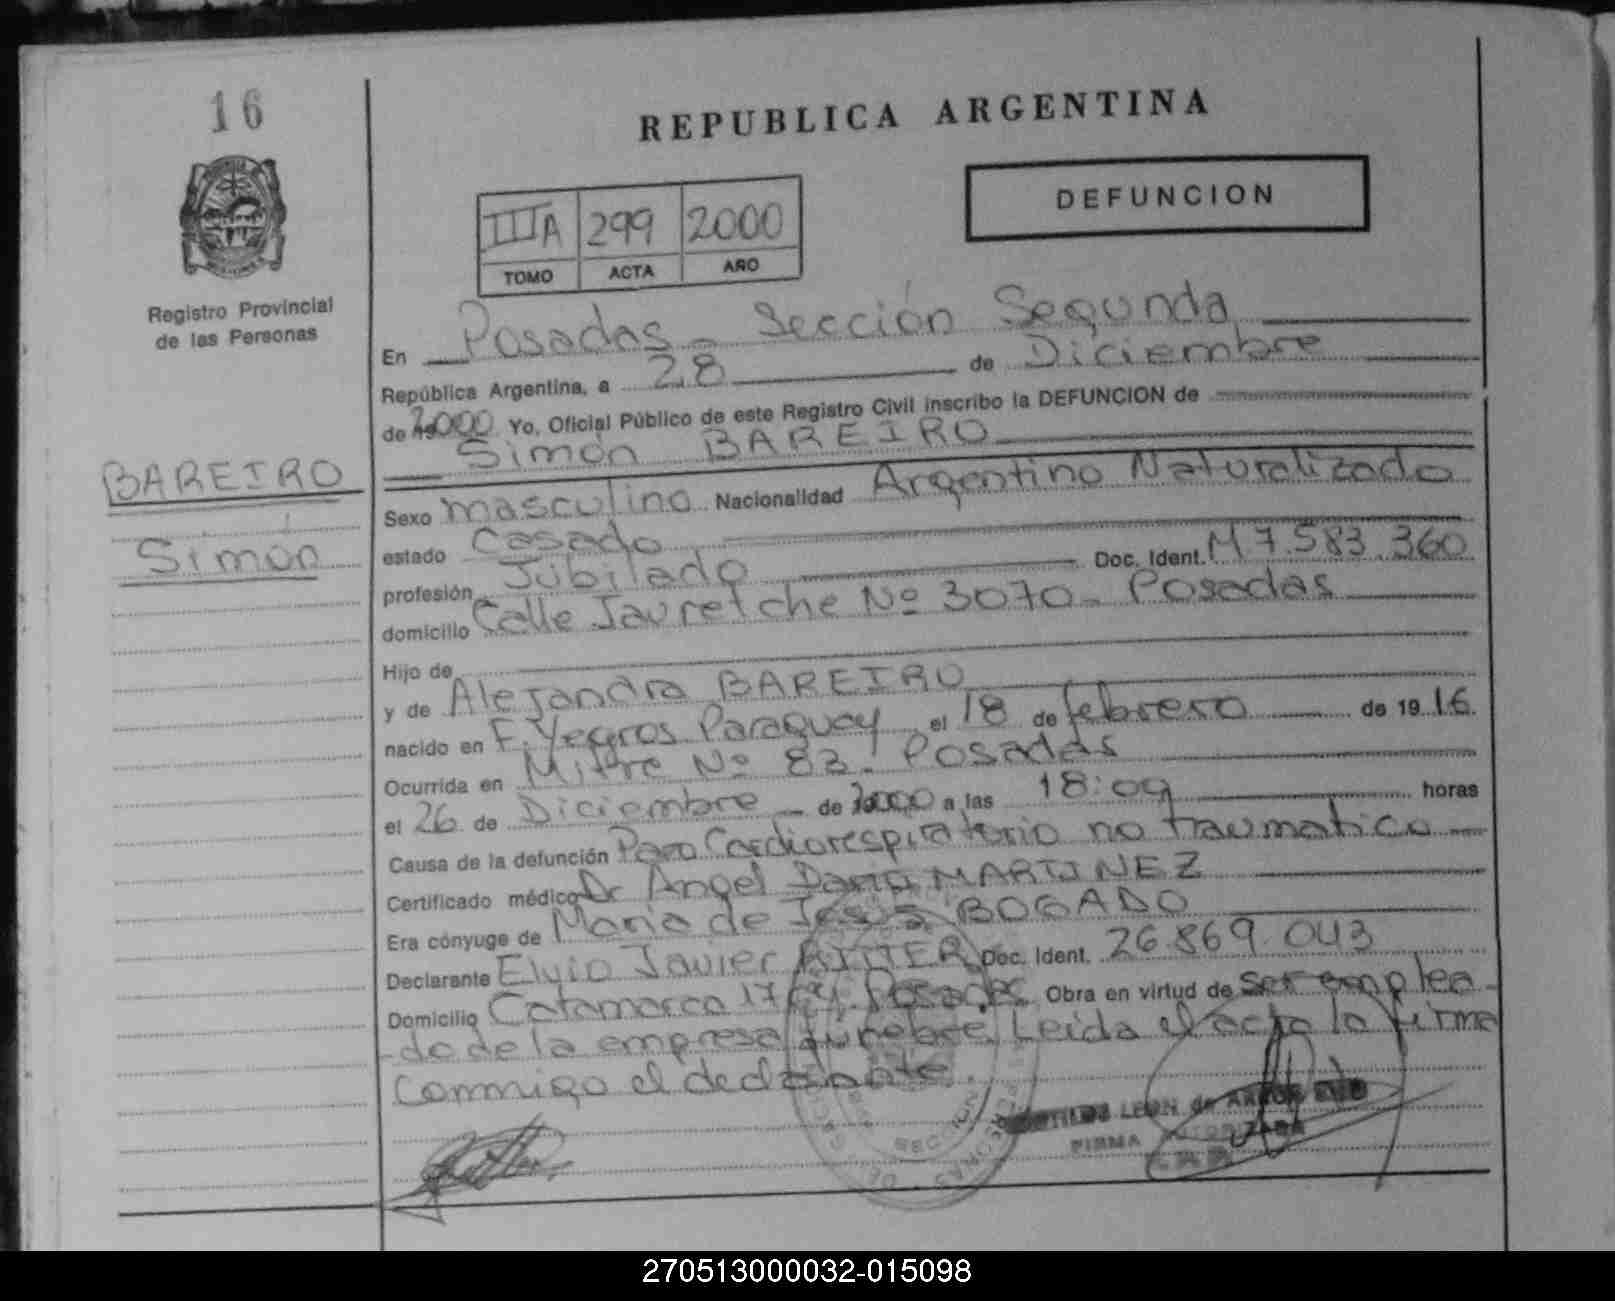 16
REPUBLICA ARGENTINA
DEFUNCION
IIIA 299 2000
TOMO ACTA AÑO
Registro Provincial
de las Personas
En Posadas - Sección Segunda
República Argentina, a 28 de Diciembre
de 2000 Yo, Oficial Público de este Registro Civil inscribo la DEFUNCION de
Simón BAREIRO
BAREIRO
Simón
Sexo masculino Nacionalidad Argentino Naturalizado
estado Casado
profesión Jubilado Doc. Ident. M 7.583.360
domicilio Calle Jauretche Nº 3070 - Posadas
Hijo de
y de Alejandra BAREIRO
nacido en F. Yegros Paraguay el 18 de febrero de 1916
Ocurrida en Mitre Nº 83. Posadas
el 26 de Diciembre de 2000 a las 18:09 horas
Causa de la defunción Paro Cardiorespiratorio no traumatico
Certificado médico Dr Angel Dario MARTINEZ
Era cónyuge de Maria de Jesus BOGADO
Declarante Elvio Javier RITTER Doc. Ident. 26.869.043
Domicilio Catamarca Posadas Obra en virtud de ser emplea-
do de la empresa funebre. Leida el acta la firma
conmigo el declarante.
LEON de
FIRMA AUTORIZADA
SECCION
270513000032-015098